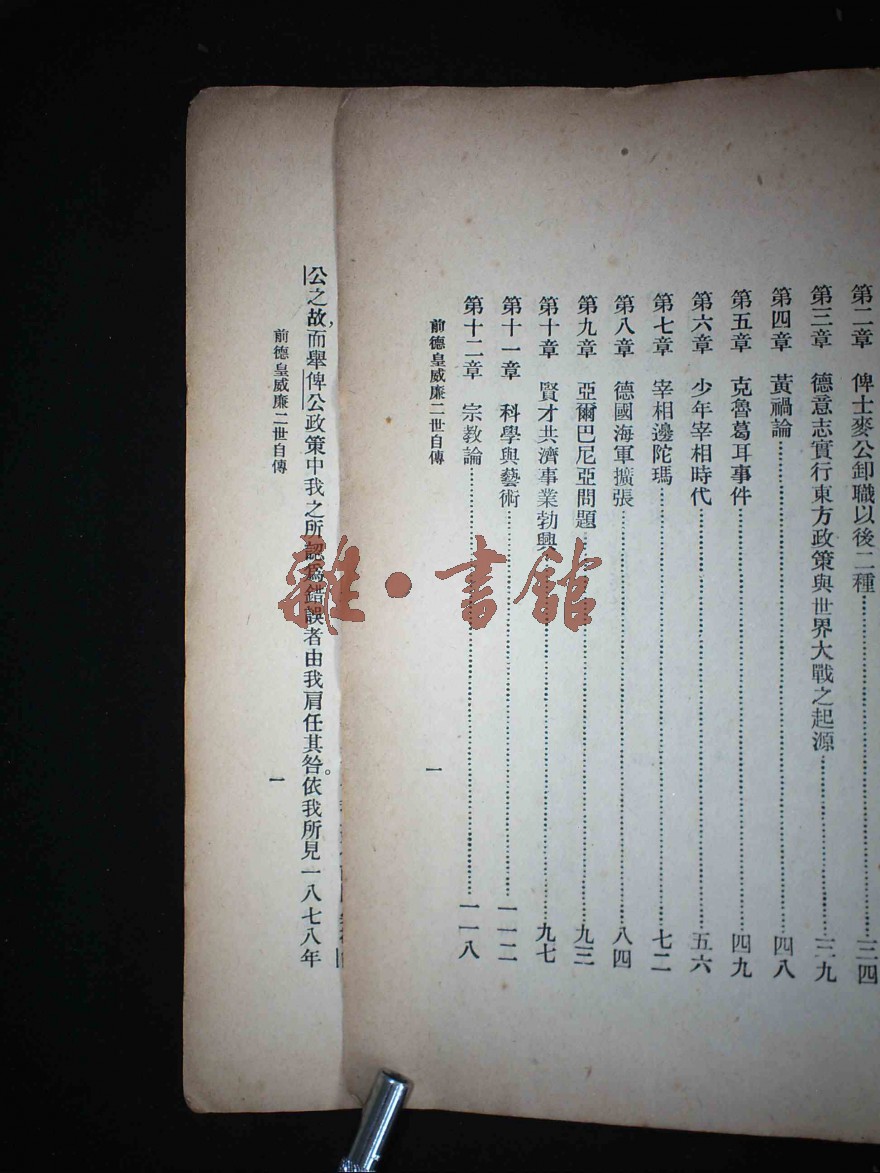 第二章　俾士麥公卸職以後二種…………三四
第三章　德意志實行東方政策與世界大戰之起源…………三九
第四章　黃禍論…………四八
第五章　克魯葛耳事件…………四九
第六章　少年宰相時代…………五六
第七章　宰相邊陀瑪…………七二
第八章　德國海軍擴張…………八四
第九章　亞爾巴尼亞問題…………九三
第十章　賢才共濟事業勃興…………九七
第十一章　科學與藝術…………一一二
第十二章　宗教論…………一一八
前德皇威廉二世自傳　一
公之故，而舉俾公政策中我之所認爲錯誤者由我肩任其咎。依我所見一八七八年
前德皇威廉二世自傳　一
雜・書館